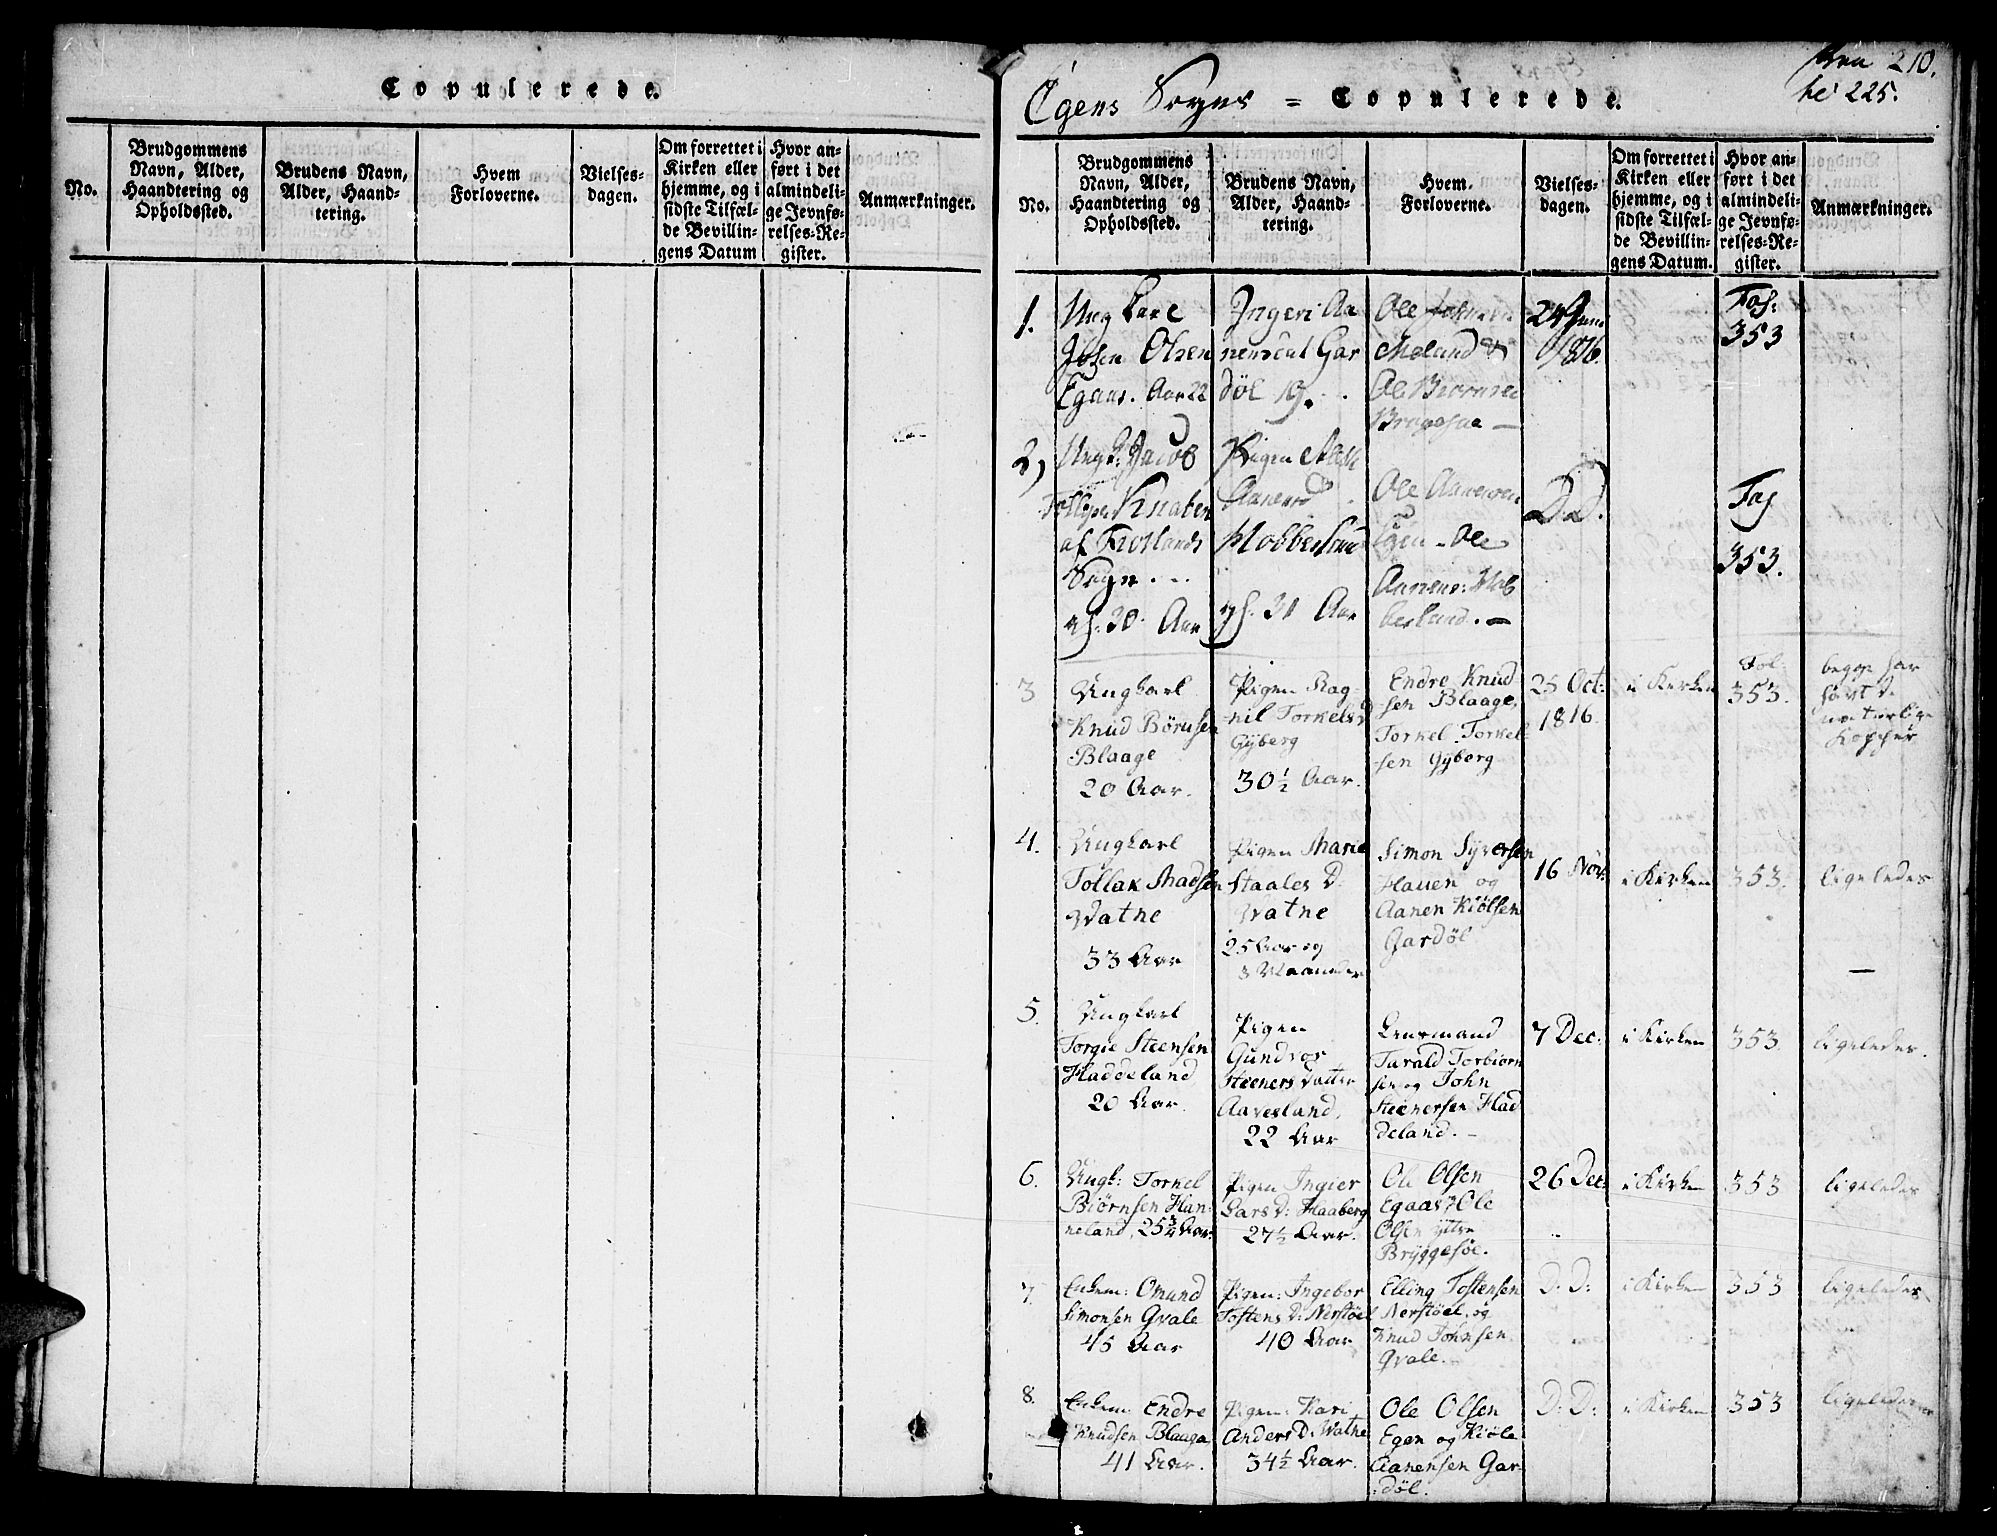 Copulerede.
No.
Brudgommens
Navn, Alder,
Haandtering og
Opholdssted.
Brudens Navn,
Alder, Haand-
tering.
Hvem
Forloverne.
Vielses-
dagen.
Om forrettet i
Kirken eller
hjemme, og i
sidste Tilfæl-
de Bevillin-
gens Datum
Hvor an-
ført i det
almindeli-
ge Jevnfø-
relses-Re-
gister.
Anmærkninger.
210.
225.
Øgens Sogns = Copulerede.
No.
Brudgommens
Navn, Alder,
Haandtering og
Opholdssted.
Brudens Navn,
Alder, Haand-
tering.
Hvem
Forloverne.
Vielses-
dagen.
Om forrettet i
Kirken eller
hjemme, og i
sidste Tilfæl-
de Bevillin-
gens Datum.
Hvor an-
ført i det
almindeli-
ge Jevnfø-
relses-Re-
gister.
Anmærkninger.
1.
Ungkarl
Olsen
Egaas. Aar 22
Ingeri Aa
Gar
døl 19.
Ole
Moland &
Ole Biørnsen
24 Juni
1816.
353
2)
Ungk: Jacob
Knaben
af
Sogn
30 Aar
Pigen
31 Aar
Ole Aanensen
Egen - Ole
Aanens:
D. D.
353.
3
Ungkarl
Knud Börnsen
Blaage
20 Aar.
Pigen Rag
nil Torkelsd
Gyberg
30½ Aar.
Endre Knud
sen Blaage,
Torkel Torkel
sen Gyberg
25 Oct:
1816.
i Kirken
Fol:
353.
begge har
havt d
naturlige
Kopper
4.
Ungkarl
Tollak Madsen
Watne
33 Aar
Pigen Marie
Staales D.
Watne
25 Aar og
3 Maaneder
Simon Syversen
Hauen og
Aanen Kiölsen
Gardøl
16 Nov.
i Kirken
353.
ligeledes
5.
Ungkarl
Torgie Steensen
Haddeland
20 Aar.
Pigen
Gundror
Steeners Datter
Aavesland,
22 Aar
Lensmand
Tarald Torbiørn
sen og John
Steenersen Had
deland. -
7 Dec:
i Kirken
353
ligeledes.
6.
Ungk: Torkel
Biørnsen Han-
neland, 25¾ Aar.
Pigen Ingier
Lars D: Haaberg
27½ Aar.
Ole Olsen
Egaas, Ole
Olsen ytre
Bryggesøe.
26 Dec:
i Kirken
353
ligeledes
7.
Enkem: Omund
Simonsen Qvale
45 Aar
Pigen: Ingebor
Tostens D: Nerstøel
40 Aar
Elling Tostensen
Nerstøel, og
Knud Johnsen
Qvale.
D: D:
i Kirken
353
ligeledes
8.
Enkem: Endre
Knudsen Blaage
41 Aar.
Pigen: Kari
Anders D: Watne
34½ Aar.
Ole Olsen
Egen og Kiöle
Aanensen Gar-
døl.
D: D:
i Kirken
353
ligeledes